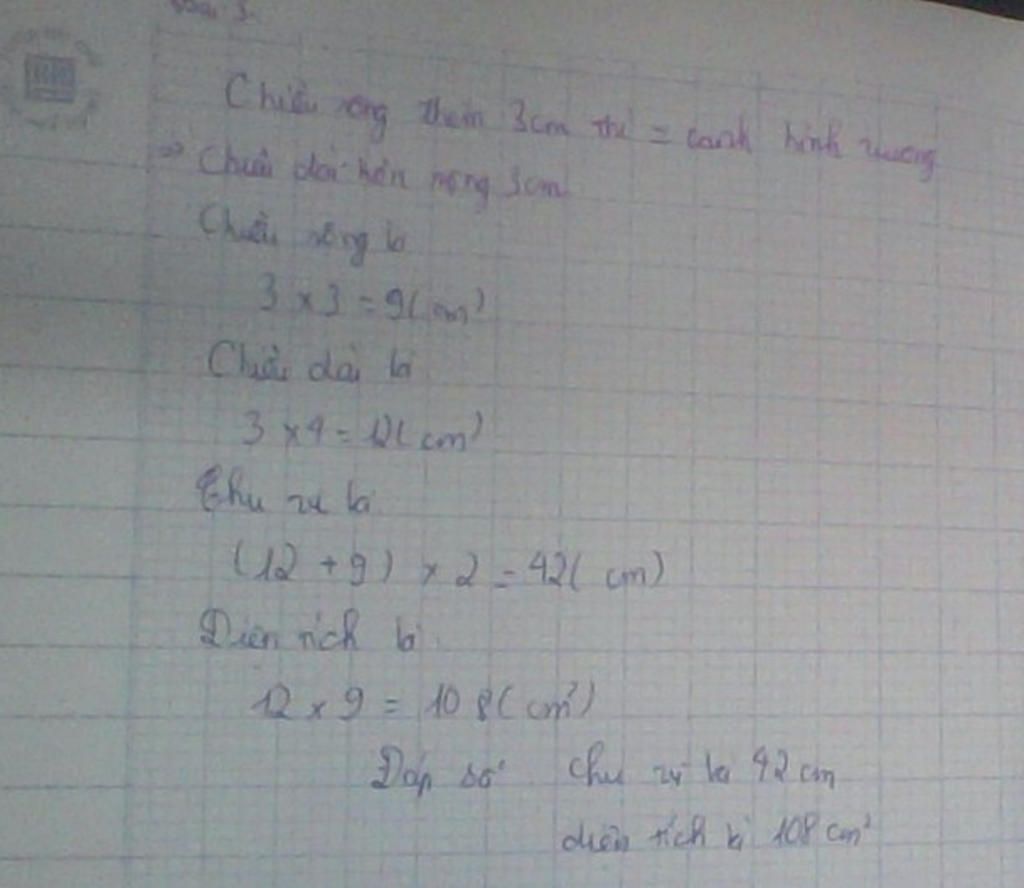 Bài 3.
Chiều rộng thêm 3cm thì = cạnh hình vuông
=> Chiều dài hơn rộng 3cm
Chiều rộng là
3 x 3 = 9(cm)
Chiều dài là
3 x 4 = 12(cm)
Chu vi là
(12 + 9) x 2 = 42(cm)
Diện tích là
12 x 9 = 108(cm²)
Đáp số chu vi là 42 cm
diện tích là 108 cm²